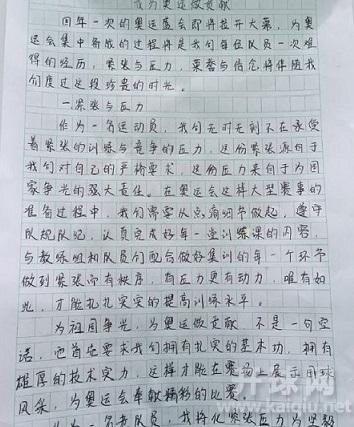 为奥运做贡献
四年一次的奥运盛会即将拉开大幕，为奥
运会集中备战的过程将是我们每位队员一次难
得的经历，紧张与压力，荣誉与信念将伴随我
们度过这段珍贵的时光。
一.紧张与压力
作为一名运动员，我们无时无刻不在承受
着紧张的训练与竞争的压力，这份紧张源自于
我们对自己的严格要求，这份压力来自于为国
家争光的强大责任。在奥运会这样大型赛事的
准备过程中，我们需要从点滴细节做起，遵守
队规队纪，认真完成好每一堂训练课的内容，
与教练组和队员们配合做好集训的每一个环节
做到紧张而有秩序，有压力更有动力，唯有如
此，才能扎扎实实的提高训练水平。
为祖国争光，为奥运做贡献，不是一句空
话，它首先要求我们拥有扎实的基本功，拥有
雄厚的技术实力，这样才能在赛场上展示国球
风采，为奥运会奉献精彩的比赛。
作为一名老队员，我将化紧张压力为坚毅
开球网
www.kaiqiu.net